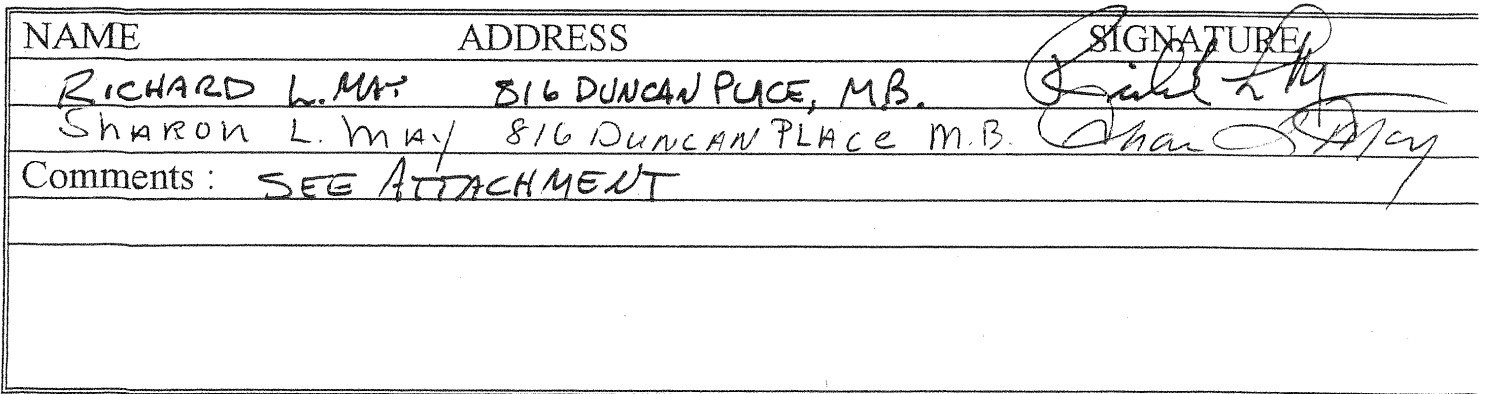 NAME ADDRESS SIGNATURE
RICHARD L. MAY 816 DUNCAN PLACE, M.B. Richard L M
SHARON L. MAY 816 DUNCAN PLACE M.B. Sharon L May
Comments : SEE ATTACHMENT